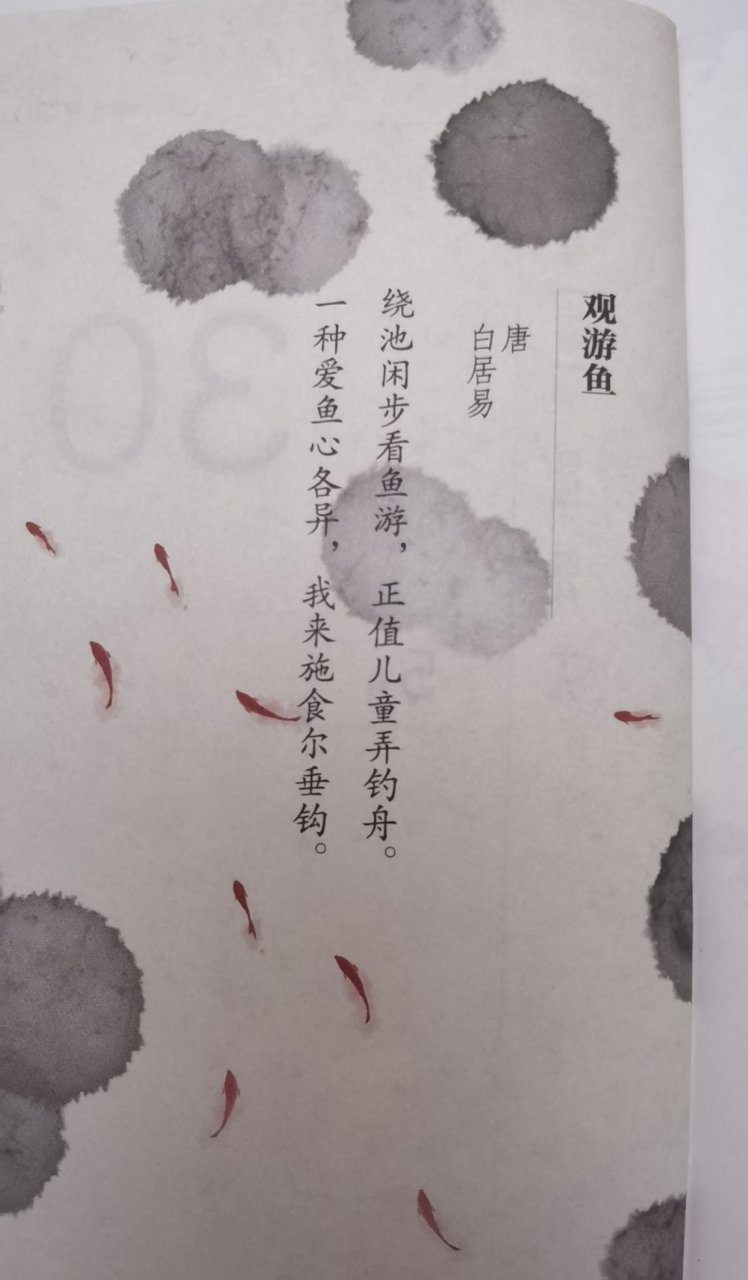 观游鱼
唐
白居易
绕池闲步看鱼游，正值儿童弄钓舟。
一种爱鱼心各异，我来施食尔垂钩。